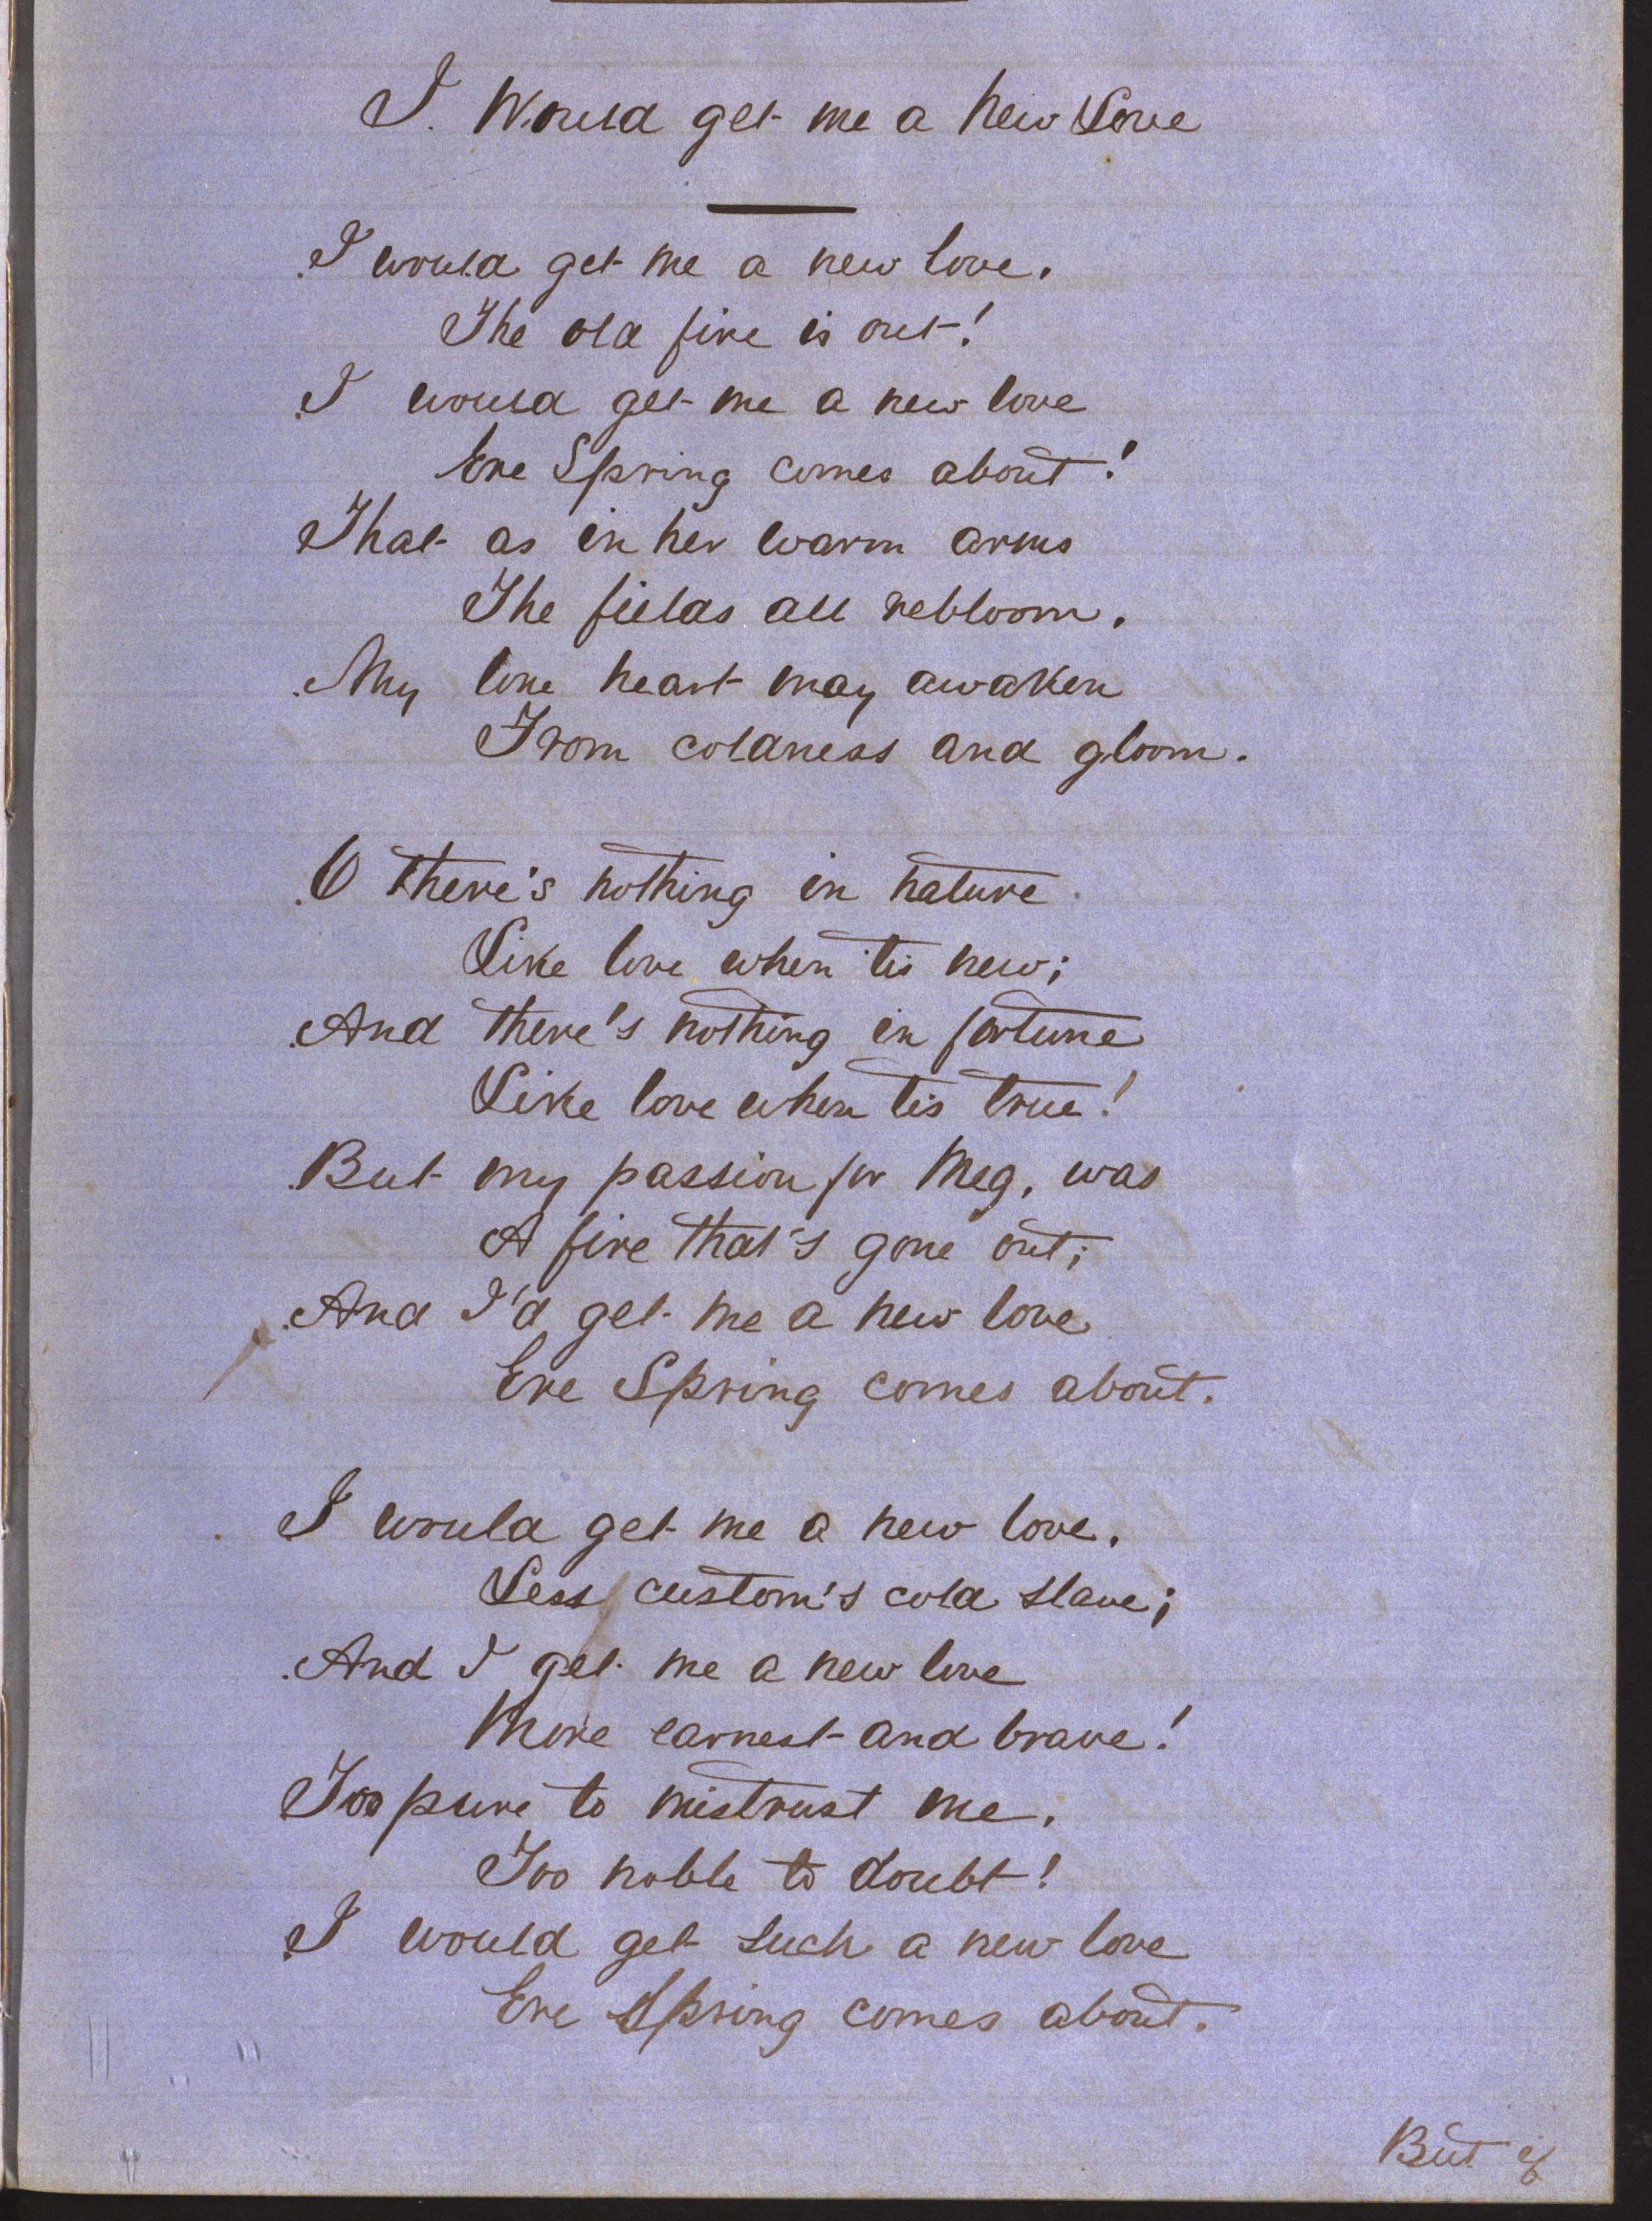 I. Would get me a New Love
I would get me a new love.
The old fire is out!
I would get me a new love
Ere Spring comes about!
That as in her warm arms
The fields all rebloom.
My lone heart may awaken
From coldness and gloom.
O there's nothing in nature
Like love when 'tis new;
And there's nothing in fortune
Like love when tis true!
But my passion for Meg, was
A fire that's gone out;
And I'd get me a new love
Ere Spring comes about.
I would get me a new love.
Less custom's cold slave;
And I get me a new love
More earnest and brave!
Too pure to mistrust me.
Too noble to doubt!
I would get such a new love
Ere Spring comes about.
But if